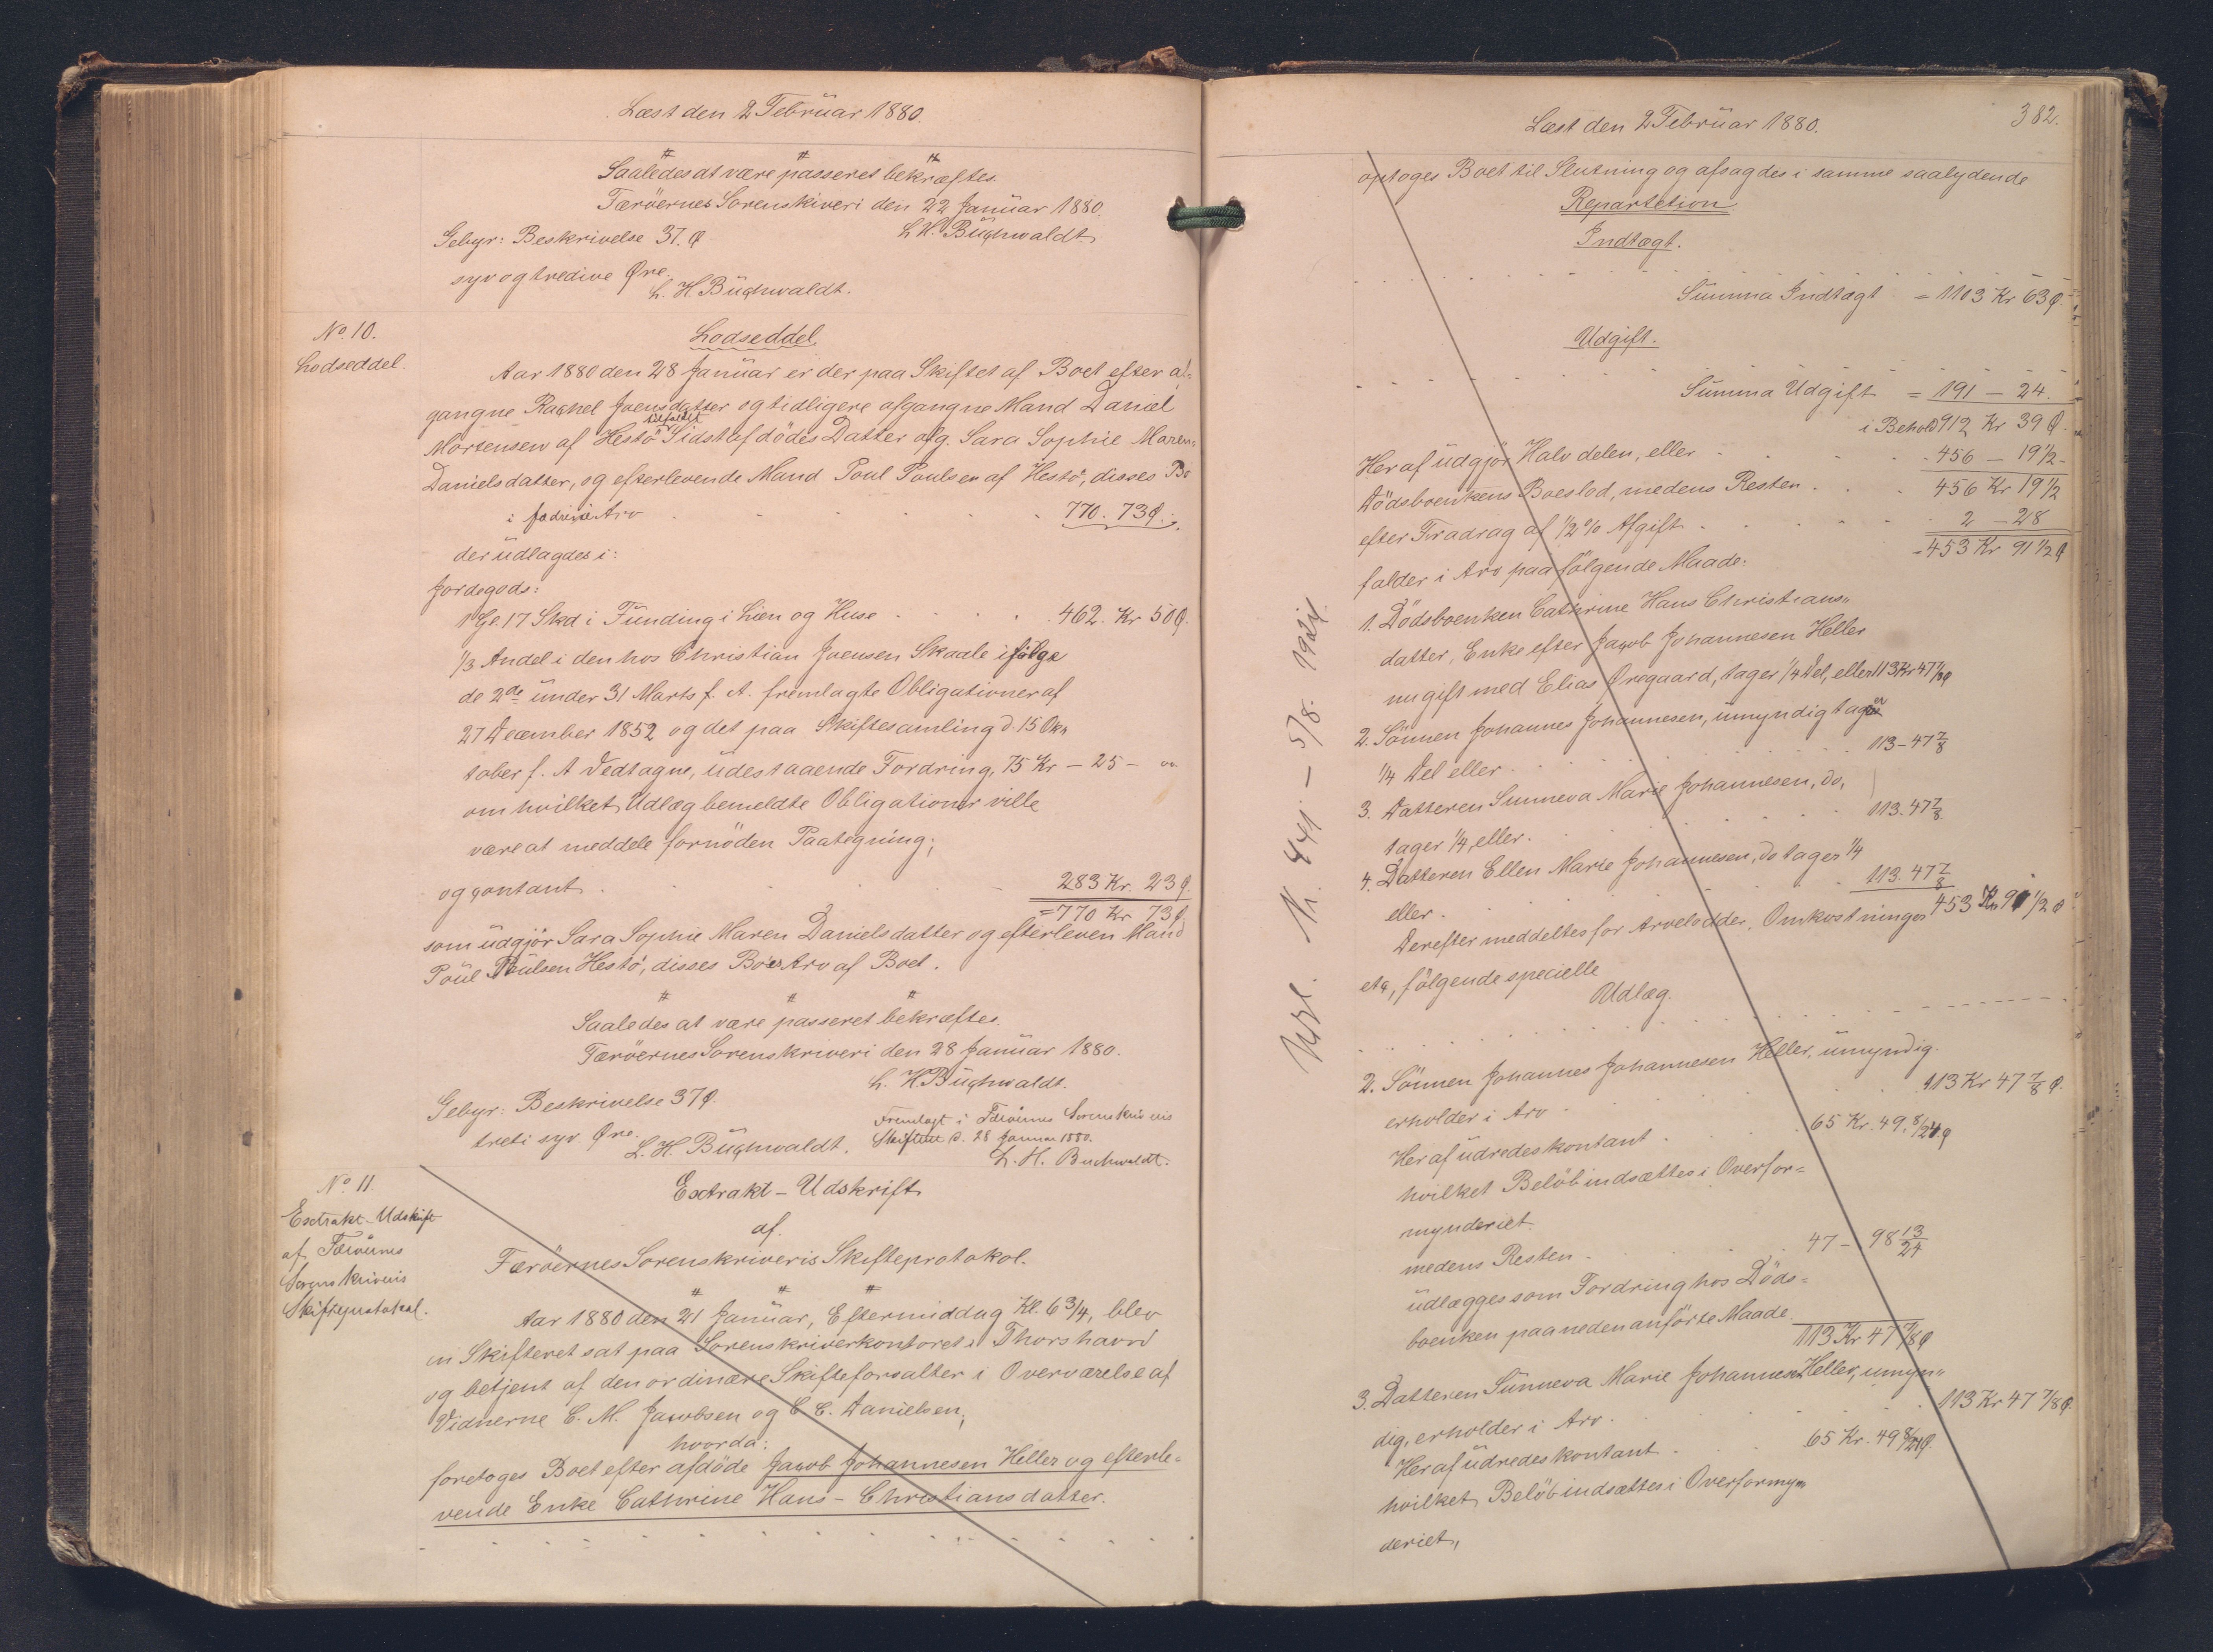 Læst den 2 Februar 1880.
Saaledes at være passeret bekræftes.
Færöernes Sorenskriveri den 22 Januar 1880.
Gebyr: Beskrivelse 37. Ø
L. H. Buchwaldt
syv og tredive Øre.
L. H. Buchwaldt.
No. 10.
Lodseddel.
Lodseddel
Aar 1880 den 28 Januar er der paa Skiftet af Boet efter af-
gangne Rachel Joensdatter og tidligere afgangne Mand Daniel
Mortensen af Hestö tilfaldt Sidstafdödes Datter afg. Sara Sophie Maren
Danielsdatter, og efterlevende Mand Poul Poulsen af Hestö, disses Bo
i fædrene Arv 770. 73 Ø.
der udlagdes i:
Jordegods:
1 Gl. 17 Skd i Funding i Lien og Huse 462. Kr 50 Ø.
1/3 Andel i den hos Christian Joensen Skaale ifölge
de 2de under 31 Marts f. A. fremlagte Obligationer af
27 December 1852 og det paa Skiftesamling d. 15 Ok-
tober f. A Vedtagne, udestaaende Fordring, 75 Kr - 25 -
om hvilket Udlæg bemeldte Obligationer ville
være at meddele fornöden Paategning;
og contant 283 Kr. 23 Ø.
= 770 Kr 73 Ø.
som udgjör Sara Sophie Maren Danielsdatter og efterleven Mand
Poul Poulsen Hestö, disses Boes Arv af Boet.
Saaledes at være passeret bekræftes.
Færöernes Sorenskriveri den 28 Januar 1880.
L. H. Buchwaldt.
Gebyr: Beskrivelse 37 Ø.
treti syv Øre.
L. H. Buchwaldt.
Fremlagt i Færöernes Sorenskriveris
Skifteret d. 28 Januar 1880.
L. H. Buchwaldt.
No. 11.
Exstrakt-Udskrift
af Færöernes
Sorenskriveris
Skifteprotokol.
Exstrakt-Udskrift
af
Færöernes Sorenskriveris Skifteprotokol.
Aar 1880 den 21 Januar, Eftermiddag Kl. 6 3/4, blev
en Skifteret sat paa Sorenskriverkontoret i Thorshavn
og betjent af den ordinære Skifteforvalter i Overværelse af
Vidnerne C. M. Jacobsen og C. C. Danielsen;
hvorda:
foretoges Boet efter afdöde Jacob Johannesen Heller og efterle-
vende Enke Cathrine Hans-Christiansdatter.
Læst den 2 Februar 1880.
382.
optoges Boet til Slutning og afsagdes i samme saalydende
Repartetion
Indtægt.
Summa Indtægt = 1103 Kr 63 Ø.
Udgift.
Summa Udgift = 191 - 24.
i Behold 912 Kr 39 Ø.
Heraf udgjör Halvdelen, eller 456 - 19 1/2
Dödsboenkens Boeslod, medens Resten 456 Kr 19 1/2
efter Fradrag af 1/2 % Afgift 2 - 28
453 Kr 91 1/2 Ø
falder i Arv paa fölgende Maade:
1. Dödsboenken Cathrine Hans Christians-
datter, Enke efter Jacob Johannesen Heller
nu gift med Elias Øregaard, tager 1/4 Del, eller 113 Kr 47 7/8 Ø
2. Sönnen Johannes Johannesen, umyndig tager
1/4 Del eller 113 - 47 7/8
3. Datteren Sunneva Marie Johannesen, do,
tager 1/4, eller 113. 47 7/8
4. Datteren Ellen Marie Johannesen, do tager 1/4
eller 113. 47 7/8
453 Kr 91 1/2 Ø
Derefter meddeltes for Arvelodder, Omkostninger
etc, fölgende specielle
Udlæg.
2. Sönnen Johannes Johannesen Heller, umyndig.
erholder i Arv 113 Kr 47 7/8 Ø.
Heraf udredes kontant 65 Kr. 49 8/24 Ø
hvilket Belöb indsættes i Overfor=
mynderiet.
medens Resten 47 - 98 13/24
udlægges som Fordring hos Döds=
boenken paa nedenanförte Maade
113 Kr 47 7/8 Ø
3. Datteren Sunneva Marie Johannesen Heller, umyn-
dig, erholder i Arv 113 Kr 47 7/8 Ø.
Heraf udredes kontant 65 Kr. 49 8/24 Ø.
hvilket Belöb indsættes i Overformyn
deriet,
N. 441 - 5/8. 1924.